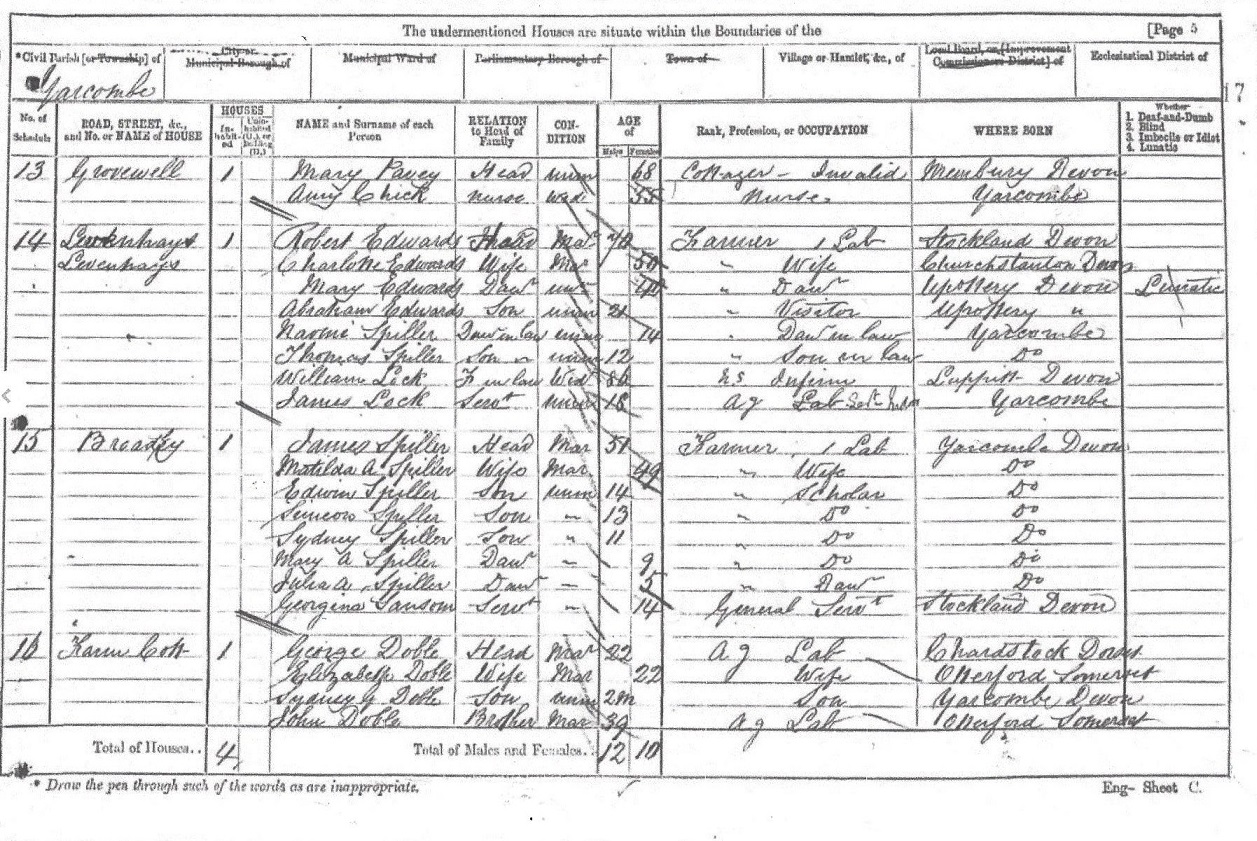 The undermentioned Houses are situate within the Boundaries of the [Page 5
*Civil Parish [or Township] of City or Municipal Borough of Municipal Ward of Parliamentary Borough of Town of Village or Hamlet, &c., of Local Board, or [Improvement Commissioners District] of Ecclesiastical District of
Yarcombe
17
No. of Schedule ROAD, STREET, &c., and No. or NAME of HOUSE HOUSES Inhabited Uninhabited (U.), or Building (B.) NAME and Surname of each Person RELATION to Head of Family CONDITION AGE of Males Females Rank, Profession, or OCCUPATION WHERE BORN Whether 1. Deaf-and-Dumb 2. Blind 3. Imbecile or Idiot 4. Lunatic
13 Grovewell 1 Mary Pavey Head unm 68 Cottager - Invalid Membury Devon
Amy Chick Nurse Wid 55 Nurse Yarcombe
14 Levenhays 1 Robert Edwards Head Mar 70 Farmer 1 Lab Stockland Devon
Levenhays Charlotte Edwards Wife Mar 50 " Wife Churchstanton Devon
Mary Edwards Dawr unm 40 " Dawr Upottery Devon Lunatic
Abraham Edwards Son unm 21 " Visitor Upottery "
Naomi Spiller Dawr in law unm 14 " Dawr in law Yarcombe
Thomas Spiller Son " unm 12 " Son in law Do
William Lock F in law Wid 86 Infirm Luppitt Devon
James Lock Servt unm 18 Ag Lab Servt Yarcombe
15 Broadley 1 James Spiller Head Mar 51 Farmer, 1 Lab Yarcombe Devon
Matilda A Spiller Wife Mar 49 " Wife Do
Edwin Spiller Son unm 14 " Scholar Do
Simeon Spiller Son " 13 " Do Do
Sydney Spiller Son " 11 " Do Do
Mary A Spiller Dawr - 9 " Do Do
Julia A. Spiller Dawr - 5 " Dawr Do
Georgina Sansom Servt " 14 General Servt Stockland Devon
16 Farm Cott 1 George Doble Head Mar 22 Ag Lab Chardstock Dorset
Elizabeth Doble Wife Mar 22 Wife Otterford Somerset
Sydney G Doble Son unm 2m Son Yarcombe Devon
John Doble Brother Mar 39 Ag Lab Otterford Somerset
Total of Houses.. 4 Total of Males and Females.. 12 10
* Draw the pen through such of the words as are inappropriate. Eng- Sheet C.